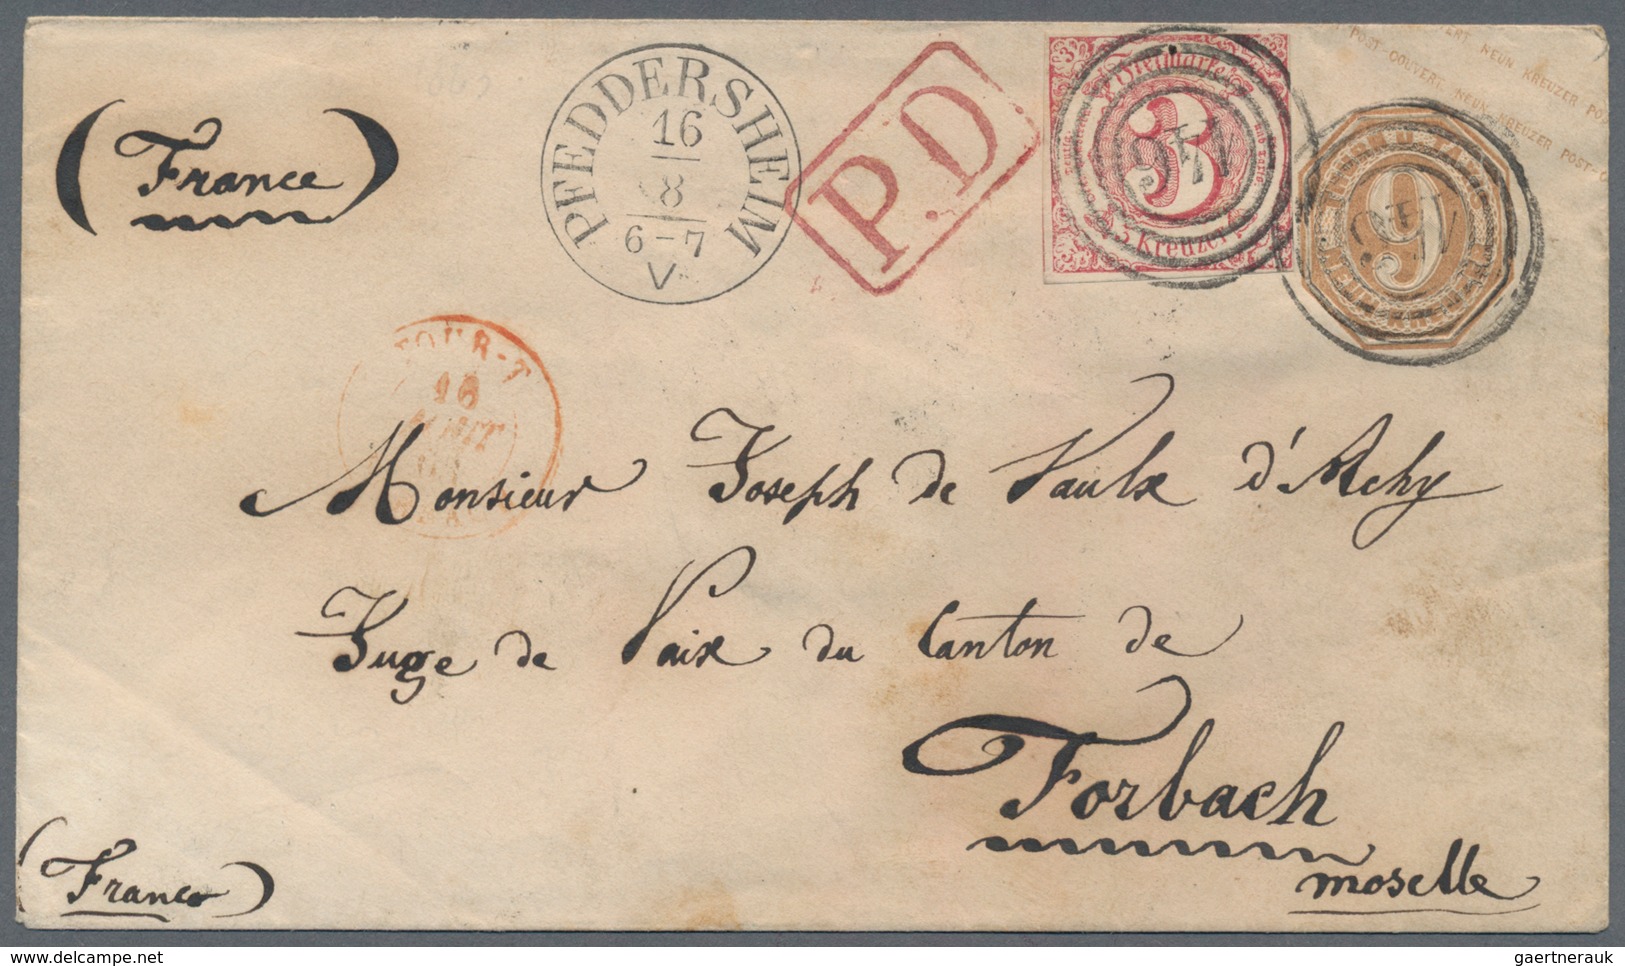 (France)
PFEDDERSHEIM
16
8
6-7
V
P.D
Freimarke
3
3 Kreuzer
POST-COUVERT NEUN KREUZER
POST-COUVERT NEUN KREUZER POST-
9
16
Monsieur Joseph de Vaulx d'Achy
Juge de Paix du Canton de
Forbach
moselle
(Franco)
gaertnerauk